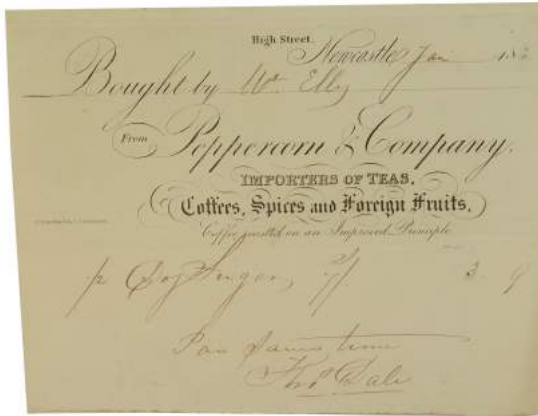 High Street.
Newcastle Jan 18
Bought by Wm Elby
From Poppercorn & Company,
IMPORTERS OF TEAS,
Coffees, Spices and Foreign Fruits,
Coffee roasted on an Improved Principle
Sugar 3 9
same time
Thos Dale